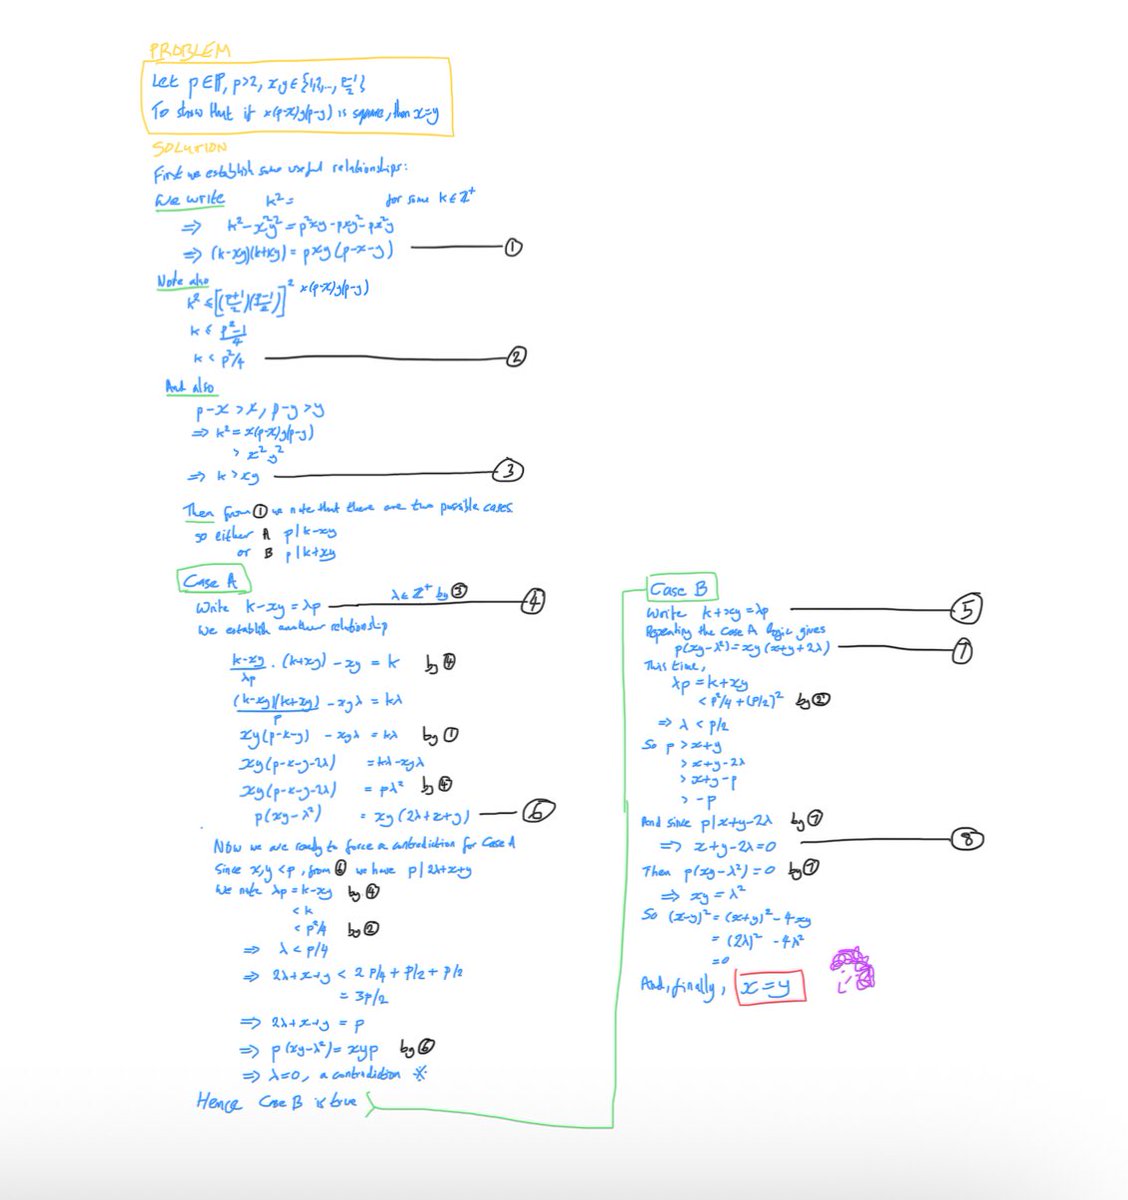 PROBLEM
Let p∈ℙ, p>2, x,y∈{1,2,..., p-1/2}
To show that if x(p-x)y(p-y) is square, then x=y
SOLUTION
First we establish some useful relationships:
We write k²= for some k∈ℤ⁺
⇒ k²-x²y² = p²xy-pxy²-px²y
⇒ (k-xy)(k+xy) = pxy(p-x-y) ①
Note also
k² ≤ [(p+1/2)(p-1/2)]² x(p-x)y(p-y)
k ≤ p²-1/4
k < p²/4 ②
And also
p-x > x, p-y > y
⇒ k² = x(p-x)y(p-y)
> x²y²
⇒ k > xy ③
Then from ① we note that there are two possible cases
so either A p | k-xy
or B p | k+xy
Case A
Write k-xy = λp λ∈ℤ⁺ by ③ ④
We establish another relationship
k-xy/λp . (k+xy) - xy = k by ④
(k-xy)(k+xy)/p - xyλ = kλ
xy(p-x-y) - xyλ = kλ by ①
xy(p-x-y-2λ) = kλ-xyλ
xy(p-x-y-2λ) = pλ² by ④
p(xy-λ²) = xy(2λ+x+y) ⑥
Now we are ready to force a contradiction for Case A
Since x,y<p, from ⑥ we have p | 2λ+x+y
We note λp = k-xy by ④
< k
< p²/4 by ②
⇒ λ < p/4
⇒ 2λ+x+y < 2 p/4 + p/2 + p/2
= 3p/2
⇒ 2λ+x+y = p
⇒ p(xy-λ²) = xyp by ⑥
⇒ λ=0, a contradiction ※
Hence Case B is true
Case B
Write k+xy = λp ⑤
Repeating the Case A logic gives
p(xy-λ²) = xy(x+y+2λ) ⑦
This time,
λp = k+xy
< p²/4 + (p/2)² by ②
⇒ λ < p/2
So p > x+y
> x+y-2λ
> x+y-p
> -p
And since p | x+y-2λ by ⑦
⇒ x+y-2λ=0 ⑧
Then p(xy-λ²)=0 by ⑦
⇒ xy = λ²
So (x-y)² = (x+y)² - 4xy
= (2λ)² - 4λ²
=0
And, finally, x=y